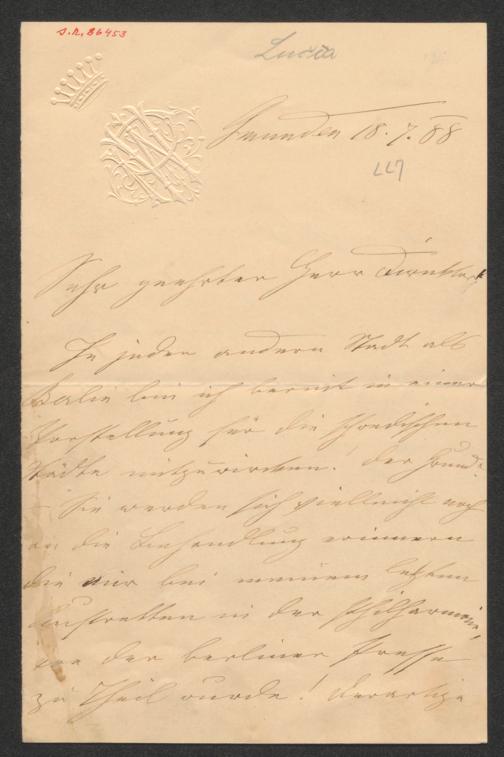 J.N. 86453
Lucca
Gmunden 18. 7. 88
227
Sehr geehrter Herr Direktor
In jeder andern Stadt als
Berlin bin ich bereit in einer
Vorstellung für die schwedischen
Städte mitzuwirken! Der Grund?
Sie werden sich vielleicht noch
an die Behandlung erinnern
die mir bei meinem letzten
Auftretten in der Philharmonie,
von der berliner Presse
zu Theil wurde! Derartige